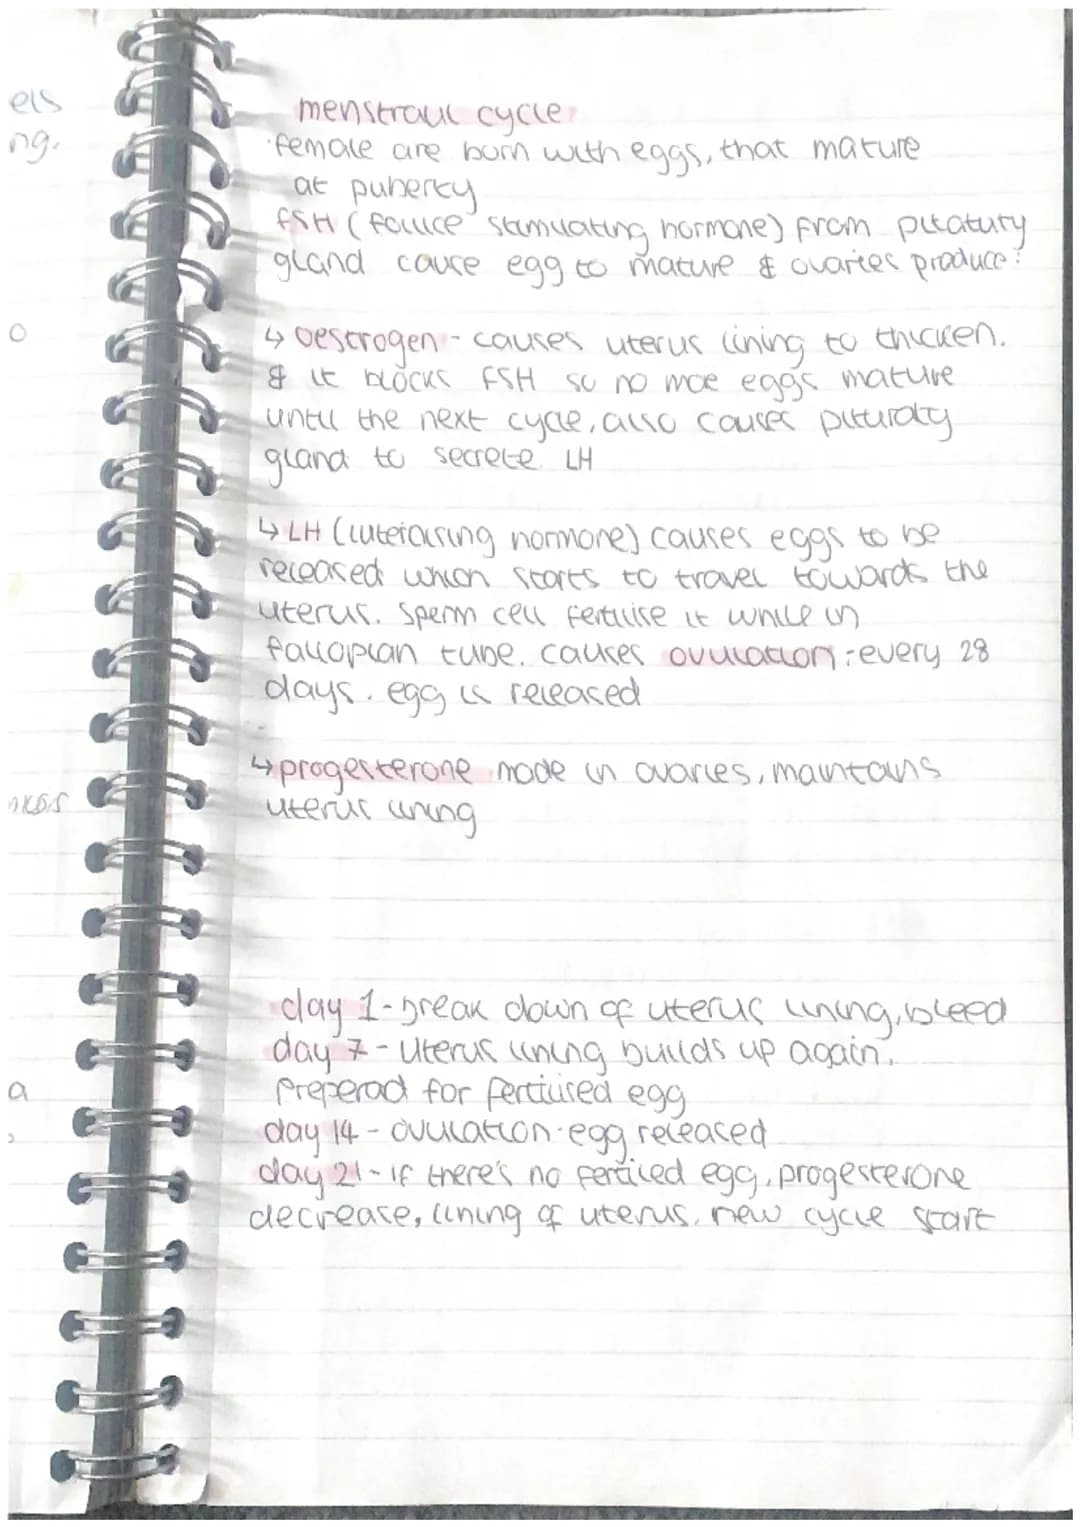 els
ng.
menstraul cycle
·female are born with eggs, that mature
at puberty
FSH (follice stimulating hormone) from pitatury
gland cause egg to mature & ovaries produce:
o
↳ Oestrogen - causes uterus lining to thicken.
& it blocks FSH so no moe eggs mature
until the next cycle, also causes piturdty
gland to secrete LH
↳ LH (luteiasing hormone) causes eggs to be
released which starts to travel towards the
uterus. Sperm cell fertilise it while in
fallopian tube. causes ovulation:-every 28
days. egg is released
↳ progesterone made in ovaries, maintans
uterus lining
day 1 - break down of uterus lining, bleed
day 7 - Uterus lining builds up again.
Preperad for fertilised egg
a
day 14 - ovulation·egg released
day 21 - if there's no fertiled egg, progesterone
decrease, lining of uterus. new cycle start